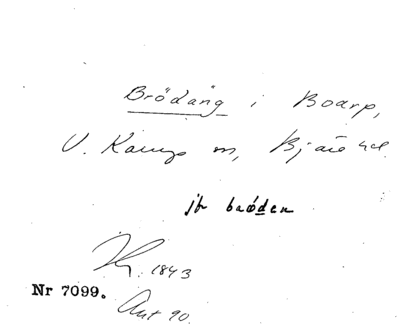 Brödäng i Boarp,
V. Karups sn, Bjäre hd.
jfr bröden
1843
Nr 7099.
Ant 90.